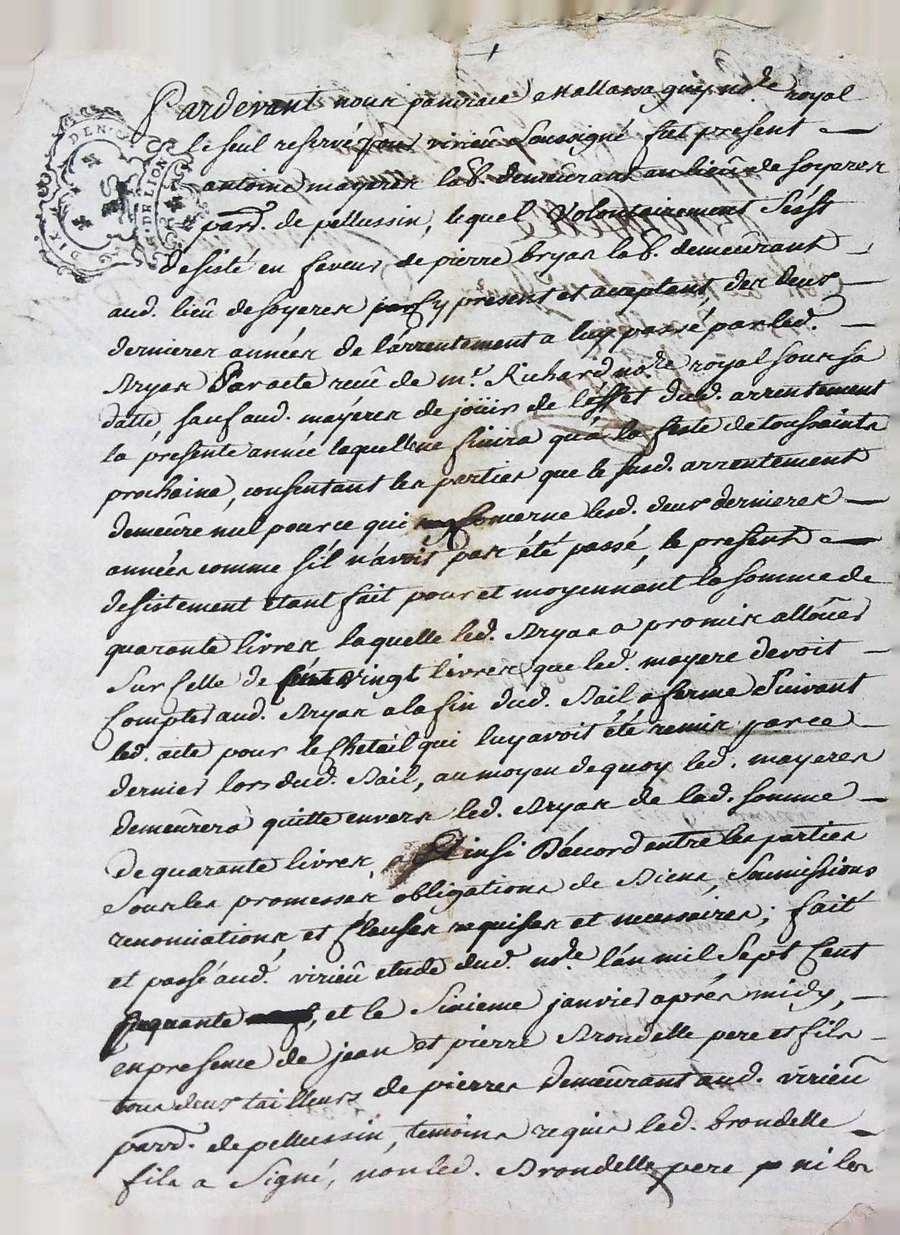 DEN·
G·DE LION
Pardevant nous pancrace Mallassagny no.re royal
le seul reservé pour virieu soussigné fut present
antoine mayeres lab.r demeurant au lieu de soyeres
parr. de pellussin, lequel volontairement s'est
desisté en faveur de pierre bryas lab.r demeurant
aud. lieu de soyeres par cy present et aceptant, des deux
dernieres années de l'arrentement a luy passé par led.
Bryas Par acte receu de m.e Richard no.re royal sous sa
datte sauf aud. mayeres de joüir de l'effet dud. arrentement
la presente année laquelle ne finira qu'a la feste de toussaints
prochaine, consentant les parties que le susd. arrentement
demeure nul pour ce qui concerne lesd. deux dernieres
années comme s'il n'avoit pas été passé, le present
desistement etant fait pour et moyennant la somme de
quarante livres laquelle led. Bryas a promis alloüer
sur celle de cent vingt livres que led. mayere devoit
compter aud. Bryas a la fin dud. Bail a ferme suivant
led. acte pour le cheteil qui luy avoit été remis par ce
dernier lors dud. Bail, au moyen de quoy led. mayeres
demeurera quitte envers led. Bryas de lad. somme
de quarante livres, Ainsi D'acord entre les parties
sous les promesses obligations de Biens, soumissions
renonciations et clauses requises et necessaires; fait
et passé aud. virieu etude dud. no.re l'an mil sept cent
soixante, et le sixieme janvier après midy,
en presence de jean et pierre Brondelle pere et fils
tous deux tailleurs de pierres demeurant aud. virieu
parr. de pellussin, temoins requis led. brondelle
fils a signé, non led. Brondelle pere ni les